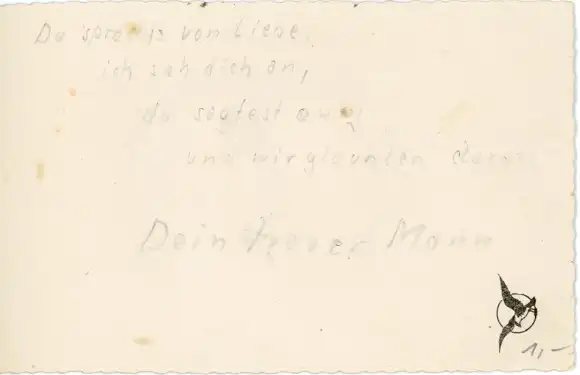 Du sprachs von Liebe,
ich sah dich an,
du sagtest
und wir glaubten daran
Dein treuer Mann
1,-